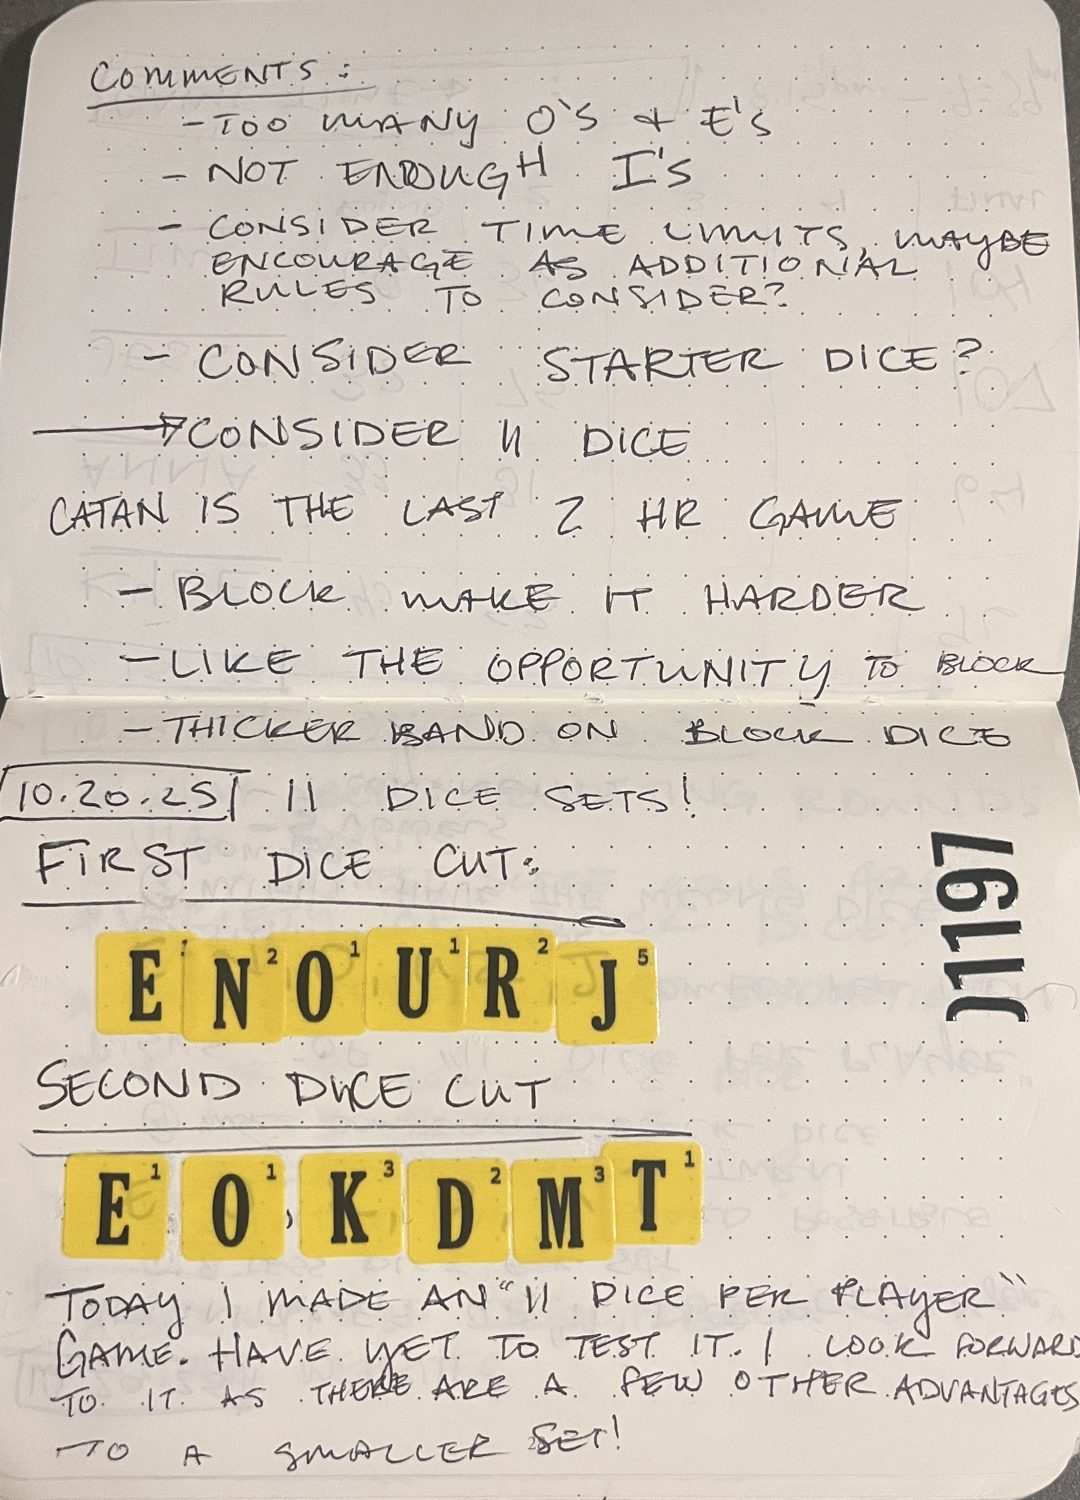 COMMENTS:
- TOO MANY O'S & E'S
- NOT ENOUGH I'S
- CONSIDER TIME LIMITS, MAYBE
ENCOURAGE AS ADDITIONAL
RULES TO CONSIDER?
- CONSIDER STARTER DICE?
→ CONSIDER 11 DICE
CATAN IS THE LAST 2 HR GAME
- BLOCK MAKE IT HARDER
- LIKE THE OPPORTUNITY TO BLOCK
- THICKER BAND ON BLOCK DICE
10.20.25 11 DICE SETS!
FIRST DICE CUT:
E N 2 O 1 U 1 R 2 J 5
SECOND DICE CUT
E 1 O 1 , K 3 D 2 M 3 T 1
TODAY I MADE AN "11 DICE PER PLAYER"
GAME. HAVE YET TO TEST IT. I LOOK FORWARD
TO IT AS THERE ARE A FEW OTHER ADVANTAGES
TO A SMALLER SET!
)1197